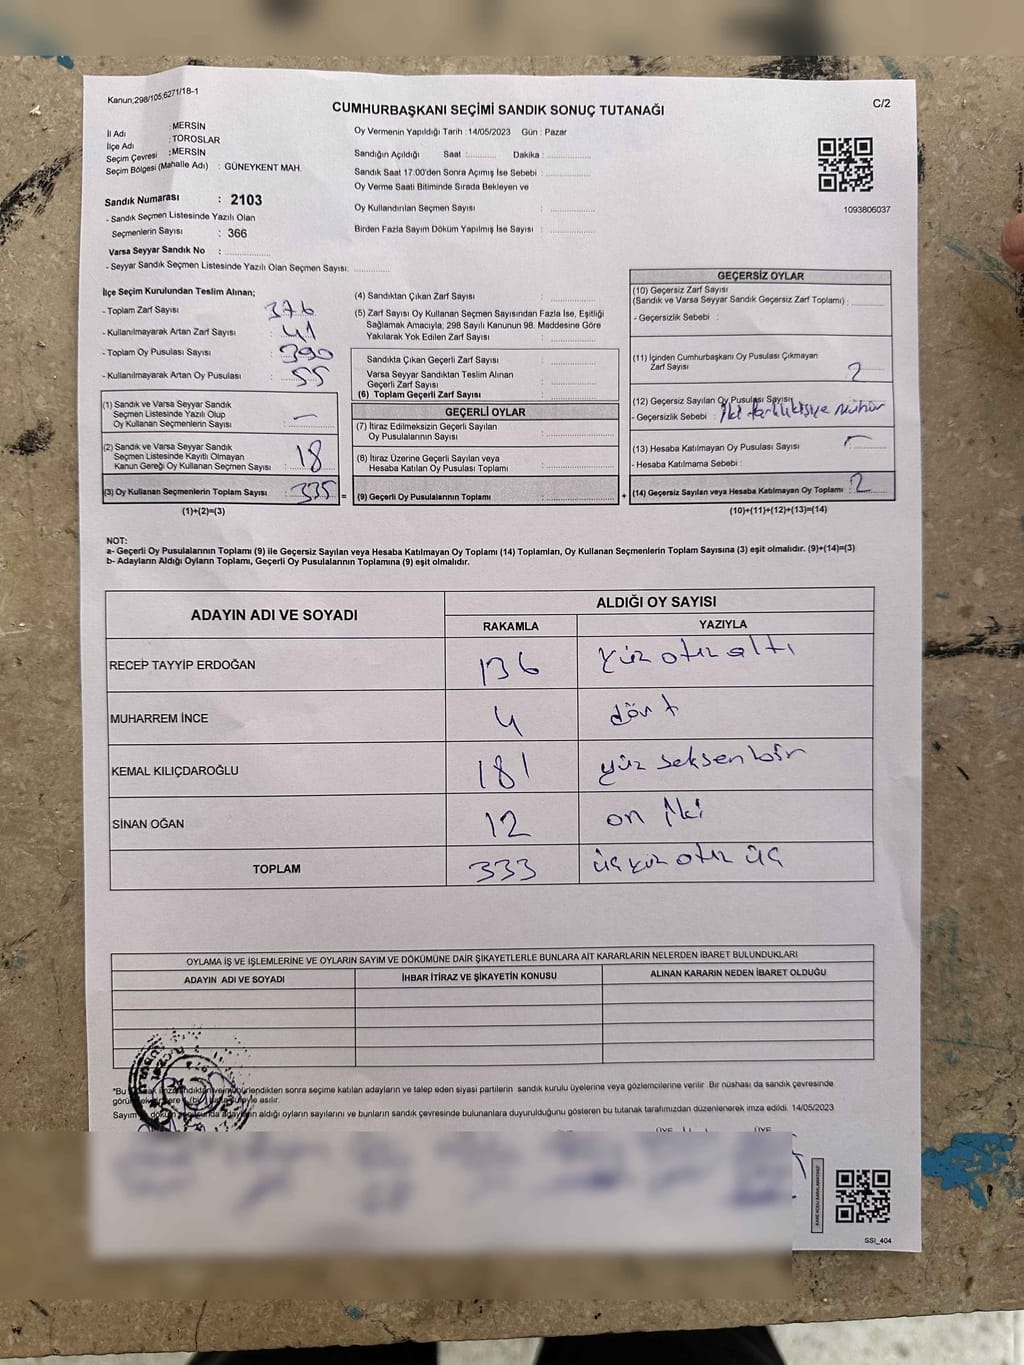 Kanun;298/105,6271/18-1
CUMHURBAŞKANI SEÇİMİ SANDIK SONUÇ TUTANAĞI
C/2
İl Adı : MERSİN
İlçe Adı : TOROSLAR
Seçim Çevresi : MERSİN
Seçim Bölgesi (Mahalle Adı) : GÜNEYKENT MAH
Sandık Numarası : 2103
- Sandık Seçmen Listesinde Yazılı Olan
Seçmenlerin Sayısı : 366
Varsa Seyyar Sandık No :
- Seyyar Sandık Seçmen Listesinde Yazılı Olan Seçmen Sayısı:
Oy Vermenin Yapıldığı Tarih : 14/05/2023 Gün : Pazar
Sandığın Açıldığı Saat : Dakika :
Sandık Saat 17:00'den Sonra Açımış İse Sebebi :
Oy Verme Saati Bitiminde Sırada Bekleyen ve
Oy Kullandırılan Seçmen Sayısı :
Birden Fazla Sayım Döküm Yapılmış İse Sayısı :
1093806037
İlçe Seçim Kurulundan Teslim Alınan;
- Toplam Zarf Sayısı : 376
- Kullanılmayarak Artan Zarf Sayısı : 41
- Toplam Oy Pusulası Sayısı : 390
- Kullanılmayarak Artan Oy Pusulası : 55
(1) Sandık ve Varsa Seyyar Sandık
Seçmen Listesinde Yazılı Olup
Oy Kullanan Seçmenlerin Sayısı : —
(2) Sandık ve Varsa Seyyar Sandık
Seçmen Listesinde Kayıtlı Olmayan
Kanun Gereği Oy Kullanan Seçmen Sayısı : 18
(3) Oy Kullanan Seçmenlerin Toplam Sayısı : 335 =
(1)+(2)=(3)
(4) Sandıktan Çıkan Zarf Sayısı :
(5) Zarf Sayısı Oy Kullanan Seçmen Sayısından Fazla İse, Eşitliği
Sağlamak Amacıyla; 298 Sayılı Kanunun 98. Maddesine Göre
Yakılarak Yok Edilen Zarf Sayısı :
Sandıkta Çıkan Geçerli Zarf Sayısı :
Varsa Seyyar Sandıktan Teslim Alınan
Geçerli Zarf Sayısı :
(6) Toplam Geçerli Zarf Sayısı :
GEÇERLİ OYLAR
(7) İtiraz Edilmeksizin Geçerli Sayılan
Oy Pusulalarının Sayısı :
(8) İtiraz Üzerine Geçerli Sayılan veya
Hesaba Katılan Oy Pusulası Toplamı :
(9) Geçerli Oy Pusulalarının Toplamı : +
GEÇERSİZ OYLAR
(10) Geçersiz Zarf Sayısı
(Sandık ve Varsa Seyyar Sandık Geçersiz Zarf Toplamı) :
- Geçersizlik Sebebi :
(11) İçinden Cumhurbaşkanı Oy Pusulası Çıkmayan
Zarf Sayısı : 2
(12) Geçersiz Sayılan Oy Pusulası Sayısı
- Geçersizlik Sebebi : İki farklı kişiye Mühür
(13) Hesaba Katılmayan Oy Pusulası Sayısı :
- Hesaba Katılmama Sebebi :
(14) Geçersiz Sayılan veya Hesaba Katılmayan Oy Toplamı : 2
(10)+(11)+(12)+(13)=(14)
NOT:
a- Geçerli Oy Pusulalarının Toplamı (9) ile Geçersiz Sayılan veya Hesaba Katılmayan Oy Toplamı (14) Toplamları, Oy Kullanan Seçmenlerin Toplam Sayısına (3) eşit olmalıdır. (9)+(14)=(3)
b- Adayların Aldığı Oyların Toplamı, Geçerli Oy Pusulalarının Toplamına (9) eşit olmalıdır.
ADAYIN ADI VE SOYADI
ALDIĞI OY SAYISI
RAKAMLA YAZIYLA
RECEP TAYYİP ERDOĞAN 136 yüz otuz altı
MUHARREM İNCE 4 dört
KEMAL KILIÇDAROĞLU 181 yüz seksen bir
SİNAN OĞAN 12 on iki
TOPLAM 333 üç yüz otuz üç
OYLAMA İŞ VE İŞLEMLERİNE VE OYLARIN SAYIM VE DÖKÜMÜNE DAİR ŞİKAYETLERLE BUNLARA AİT KARARLARIN NELERDEN İBARET BULUNDUKLARI
ADAYIN ADI VE SOYADI İHBAR İTİRAZ VE ŞİKAYETİN KONUSU ALINAN KARARIN NEDEN İBARET OLDUĞU
*Bu sonra seçime katılan adayların ve talep eden siyasi partilerin sandık kurulu üyelerine veya gözlemcilerine verilir .Bir nüshası da sandık çevresinde
asılır.
Sayım aldığı oyların sayılarını ve bunların sandık çevresinde bulunanlara duyurulduğunu gösteren bu tutanak tarafımızdan düzenlenerek imza edildi. 14/05/2023
ÜYE ÜYE
SSI_404